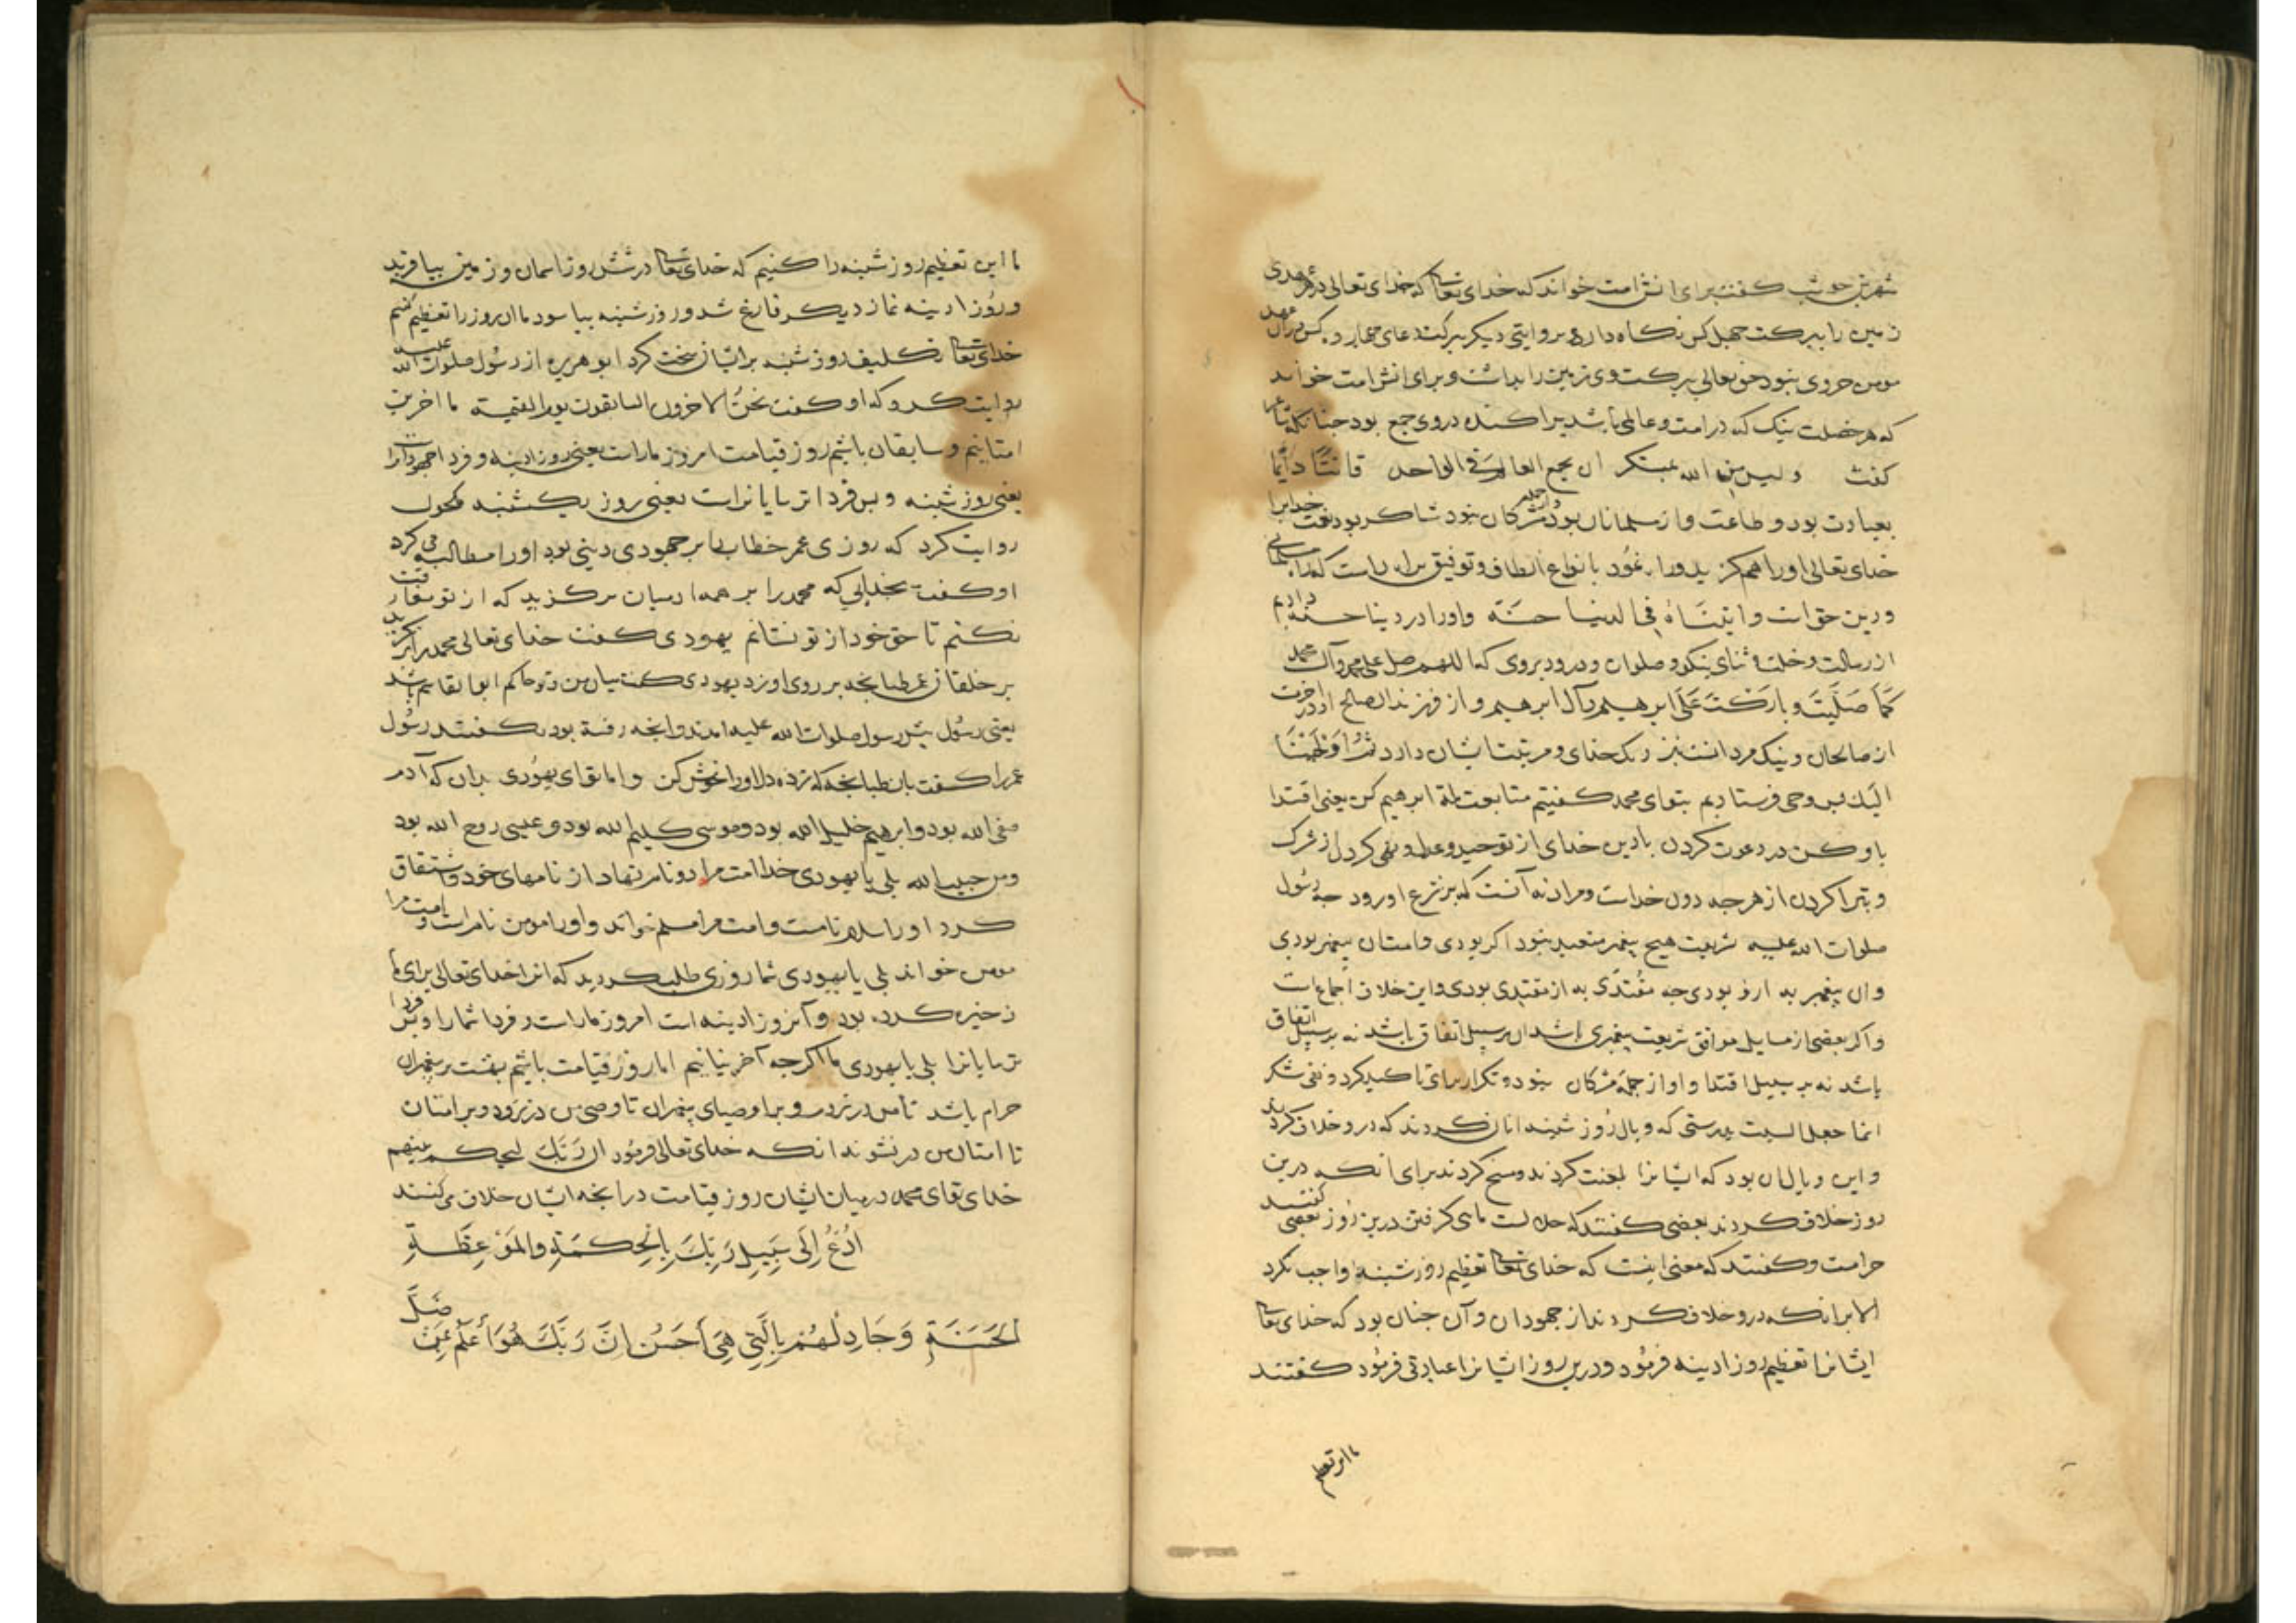 شهر بن حوشب گفت برای انش امت خواند که خدای تعا که خدای تعالی در هر عهدی
زمین را ببرکت چهل کس نگاه دارد و بروایتی دیگر ببرکت دعای چهارده کس در آن عهد
مومن جز وی نبود حق تعالی ببرکت وی زمین را بداشت و برای انش امت خواند
که هر خصلت نیک که در امت و عالمی باشد پراکنده در وی جمع بود چنانکه شاعر
گفت ولیس من الله بمستنکر ان یجمع العالم فی الواحد قانتا دایما
بعبادت بود و طاعت و از مسلمانان بود و از جمله مشرکان نبود شاکر بود نعمت خدایرا
خدای تعالی او را هم گزید و را نمود بانواع الطاف و توفیق براه راست که راه مسلمانی
و دین حق است و اتیناه فی الدنیا حسنة و او را در دنیا حسنه دادیم
از رسالت و خلت و ثنای نیکو و صلوات و درود بروی که اللهم صل علی محمد و آل محمد
کما صلیت و بارکت علی ابرهیم و آل ابرهیم و از فرزندان صالح او در آخرت
از صالحان و نیک مردانست نزدیک خدای و مرتبت ایشان دارد ثم اوحینا
الیک پس وحی فرستادیم بتو ای محمد گفتیم متابعت ملة ابرهیم کن یعنی اقتدا
باو کن در دعوت کردن بادین خدای از توحید و عدل و نفی کردن از شرک
و تبرا کردن از هر چه دون خداست و مراد نه آنست که بر شرع او رود چه رسول
صلوات الله علیه شریعت هیچ پیغمبر متعبد نبود اگر بودی و امتان پیغمبر بودی
و ان پیغمبر به ازو بودی چه مقتدی به از مقتدی بودی و این خلاف اجماع است
و اگر بعضی از مسایل موافق شریعت پیغمبری باشد ان بر سبیل اتفاق باشد نه بر سبیل اتفاق
باشد نه بر سبیل اقتدا و او از جمله مشرکان نبود و تکرار برای تاکید کرد و نفی شک
انما جعل السبت بدرستی که وبال روز شنبه بر انان کردند که درو خلاف کردند
و این وبال ان بود که ایشانرا لعنت کردند و مسخ کردند برای انکه درین
روز خلاف کردند بعضی گفتند که حلالست ماهی گرفتن درین روز بعضی گفتند
حرامست و گفتند که معنی اینست که خدای تعا تعظیم روز شنبه واجب نکرد
الا بر انانکه درو خلاف کردند از جهودان و آن چنان بود که خدای تعا
ایشانرا تعظیم روز ادینه فرمود و درین روز ایشانرا عبادتی فرمود گفتند
ما این تعظیم
ما این تعظیم روز شنبه را کنیم که خدای تعا در شش روز اسمان و زمین بیافرید
و روز ادینه نماز دیگر فارغ شد و روز شنبه بیاسود ما ان روز را تعظیم کنیم
خدای تعا تکلیف روز شنبه بر ایشان سخت کرد ابو هریره از رسول صلوات الله علیه
روایت کرد که او گفت نحن الاخرون السابقون یوم القیمة ما اخرین
امتانیم و سابقان باشیم روز قیامت امروز ماراست یعنی روز ادینه و فردا جهودانرا
یعنی روز شنبه و پس فردا ترسایانراست یعنی روز یکشنبه مکحول
روایت کرد که روزی عمر خطاب را بر جهودی دینی بود او را مطالبه می کرد
او گفت بخدایی که محمد را بر همه ادمیان برگزید که از تو مفارقت
نکنم تا حق خود از تو نستانم یهودی گفت خدای تعالی محمد را برنگزید
بر خلقان عمر طبانچه بر روی او زد یهودی گفت میان من و تو حاکم ابو القاسم باشد
یعنی رسول پیش رسول صلوات الله علیه امدند و انچه رفته بود بگفتند رسول
عمر را گفت بان طبانچه که زده دل او را خوش کن و اما تو ای یهودی بدان که آدم
صفی الله بود و ابرهیم خلیل الله بود و موسی کلیم الله بود و عیسی روح الله بود
و من حبیب الله بلی یا یهودی خدا امت مرا دو نام نهاد از نامهای خود و اشتقاق
کرد او را سلام نامست و امت مرا مسلم خواند و او را مومن نام است و امت مرا
مومن خواند بلی یا یهودی شما روزی طلب کردید که انرا خدای تعالی برای ما
ذخیره کرده بود و آنروز ادینه است امروز ماراست و فردا شما را و پس فردا
ترسایانرا بلی یا یهودی ما اگرچه آخرینانیم اما روز قیامت باشیم بهشت بر پیغمبران
حرام باشد تا من در نروم و بر اوصیای پیغمبران تا وصی من در نرود و بر امتان
تا امتان من در نشوند انکه خدای تعالی فرمود ان ربک لیحکم بینهم
خدای تو ای محمد در میان ایشان روز قیامت در انچه ایشان خلاف می کنند
اُدْعُ اِلَی سَبِیلِ رَبِّکَ بِالحِکمَةِ وَالمَوْعِظَةِ
الحَسَنَةِ وَجَادِلْهُمْ بِالَّتِی هِیَ اَحْسَنُ اِنَّ رَبَّکَ هُوَ اَعْلَمُ بِمَنْ ضَلَّ